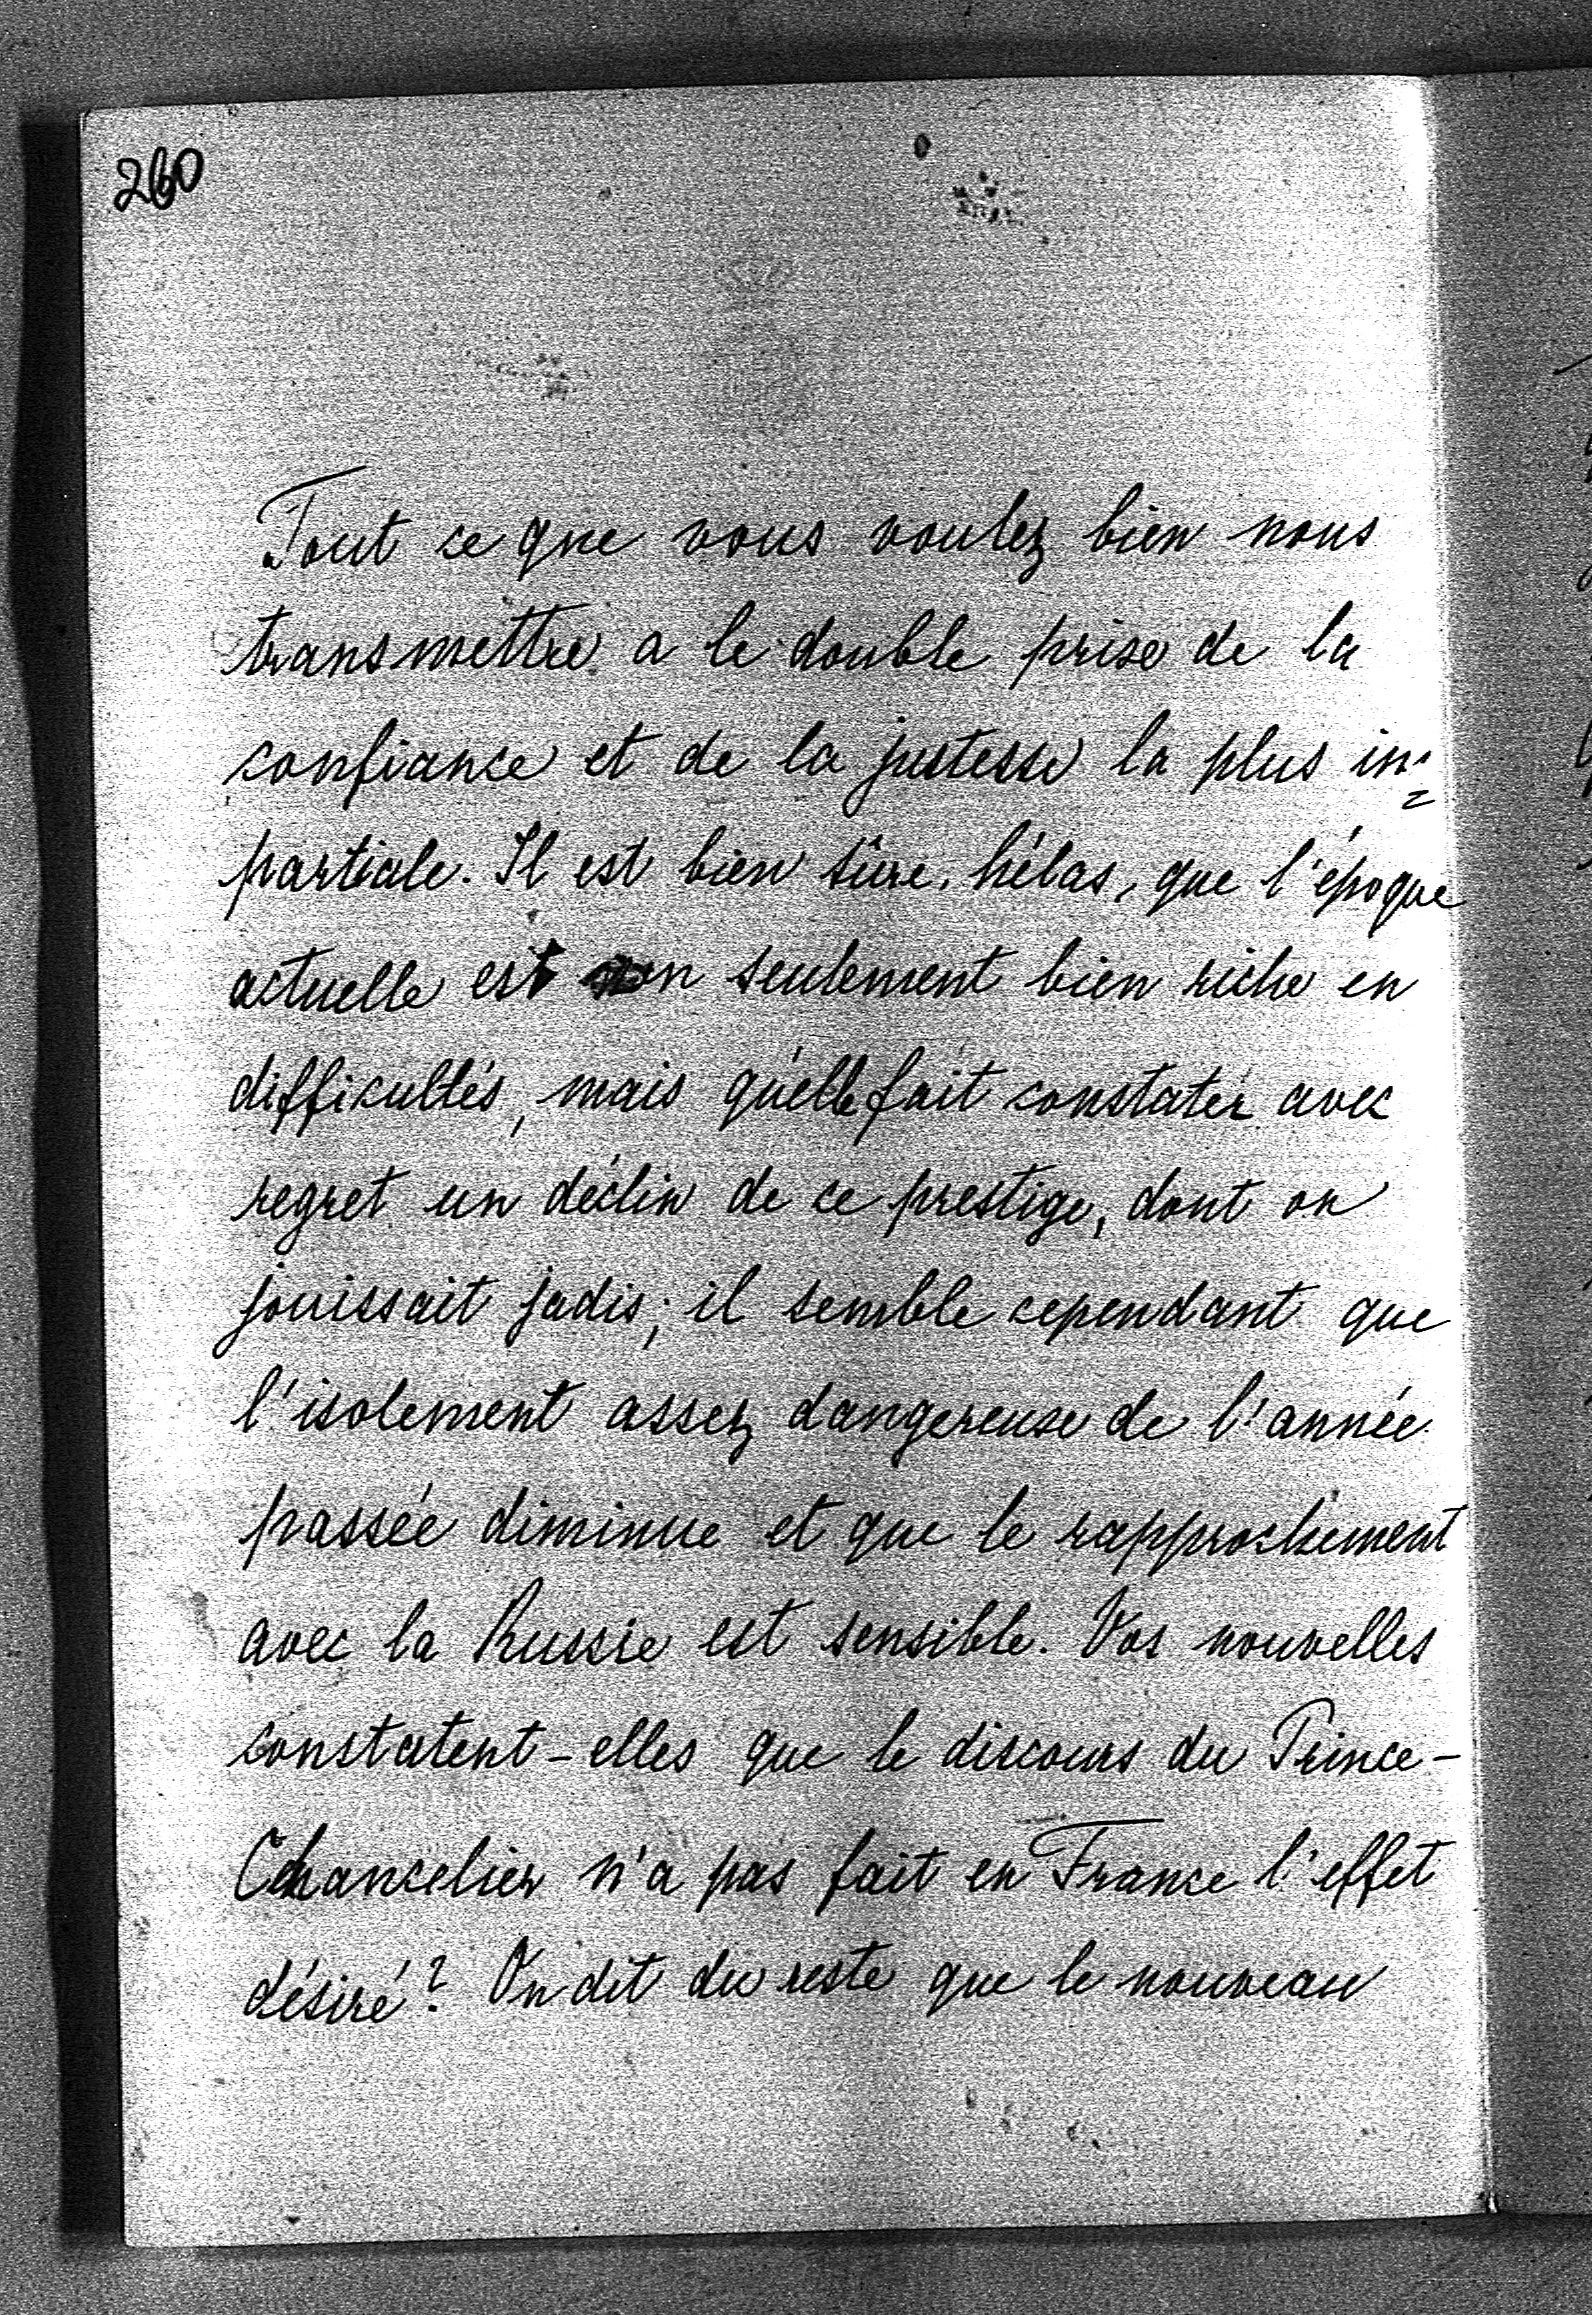 260
Tout ce que vous voulez bien nous
transmettre a le double prise de la
confiance et de la justesse la plus im=
partiale. Il est bien sûre, hélas, que l'époque
actuelle est non seulement bien riche en
difficultés, mais qu'elle fait constater avec
regret un déclin de ce prestige, dont on
jouissait jadis; il semble cependant que
l'isolement assez dangereuse de l'année
passée diminue et que le rapprochement
avec la Russie est sensible. Vos nouvelles
constatent-elles que le discours du Prince-
Chancelier n'a pas fait en France l'effet
désiré? On dit du reste que le nouveau